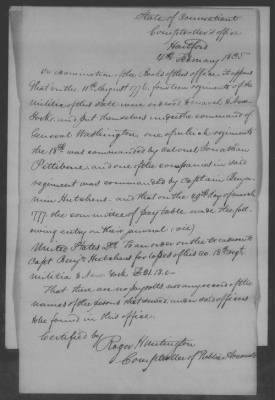 State of Connecticut
Comptroller's office
Hartford
11th February 1835
On examination of the Books of this office it appears
that on the 11th August 1776, fourteen regiments of the
Militia of this State were ordered to march to New
York, and put themselves under the command of
General Washington, one of which regiments
the 18th was commanded by Colonel Jonathan
Pettibone, and one of the companies in said
regiment was commanded by Captain Benja
min Hutchens. and that on the day of
1777. the committee of pay table made the fol
lowing entry on their journal, (viz)
United States Dr. To an order on the treasurer to
Capt Benj. Hutchens for losses of his Co. 18th Regt
Militia to New York £21.13.0-
That there are no payrolls nor any record of the
names of the persons that served under said officers
to be found in this office.
Certified by
Roger Huntington
Comptroller of Public Accounts